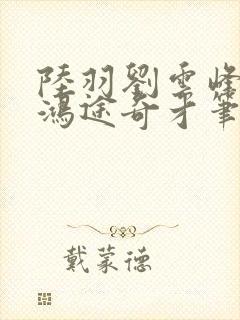 陸羽劉雲峰
鴻途奇才筆
戴蒙德